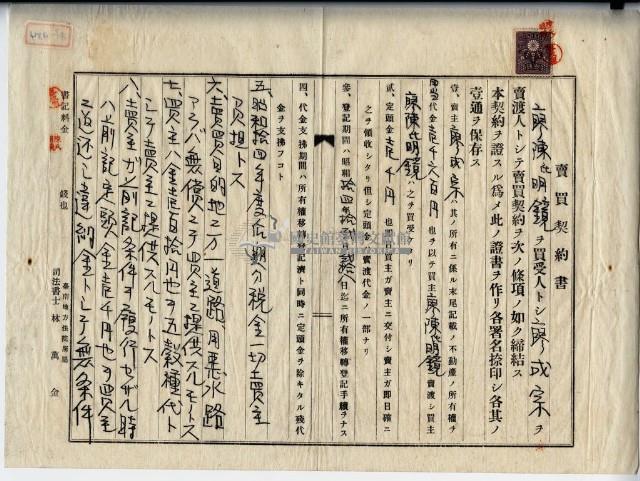 賣買契約書
廖陳氏明鏡ヲ買受人トシ廖成宗ヲ
賣渡人トシテ賣買契約ヲ次ノ條項ノ如ク締結ス
本契約ヲ證スル爲メ此ノ證書ヲ作リ各署名捺印シ各其ノ
壹通ヲ保存ス
壹、賣主廖成宗ハ其ノ所有ニ係ル末尾記載ノ不動產ノ所有權ヲ
代金壹千六百円也ヲ以テ買主廖陳氏明鏡賣渡シ買主
廖陳氏明鏡ハ之ヲ買受ケタリ
貳、定頭金壹千円也ハ買主ガ賣主ニ交付シ賣主ガ即日確ニ
之ヲ領收シタリ但シ定頭金ハ賣渡代金ノ一部ナリ
參、登記期間ハ昭和拾四年拾日迄ニ所有權移轉登記手續ヲナス
四、代金支拂期間ハ所有權移轉登記濟ト同時ニ定頭金ヲ除キタル殘代
金ヲ支拂フコト
五、昭和拾四年度下期分稅金一切賣主
負担トス
六、賣買目的地之万一道路用惡水路
アラバ無償ニテ買主ニ提供スルモノトス
七、買主ハ金壹百拾円也ヲ五穀種代ト
シテ賣主ニ提供スルモノトス
八、賣主ガ前記條件ヲ履行セザル時
ハ前記定頭金壹千円也ヲ買主
ニ返還シ違約金トシテ無條件
書記料金 錢也
臺南地方法院所屬
司法書士 林萬金
國史館臺灣文獻館